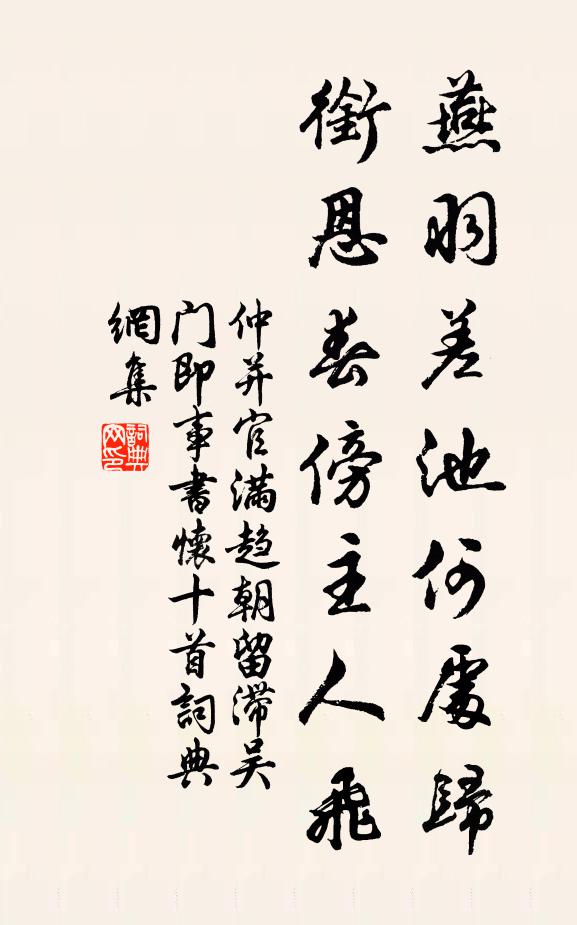 燕羽差池何處歸
銜恩春傍主人飛
仲并官满趋朝留滞吴
门即事書懷十首詞典
網集
詞典
网印